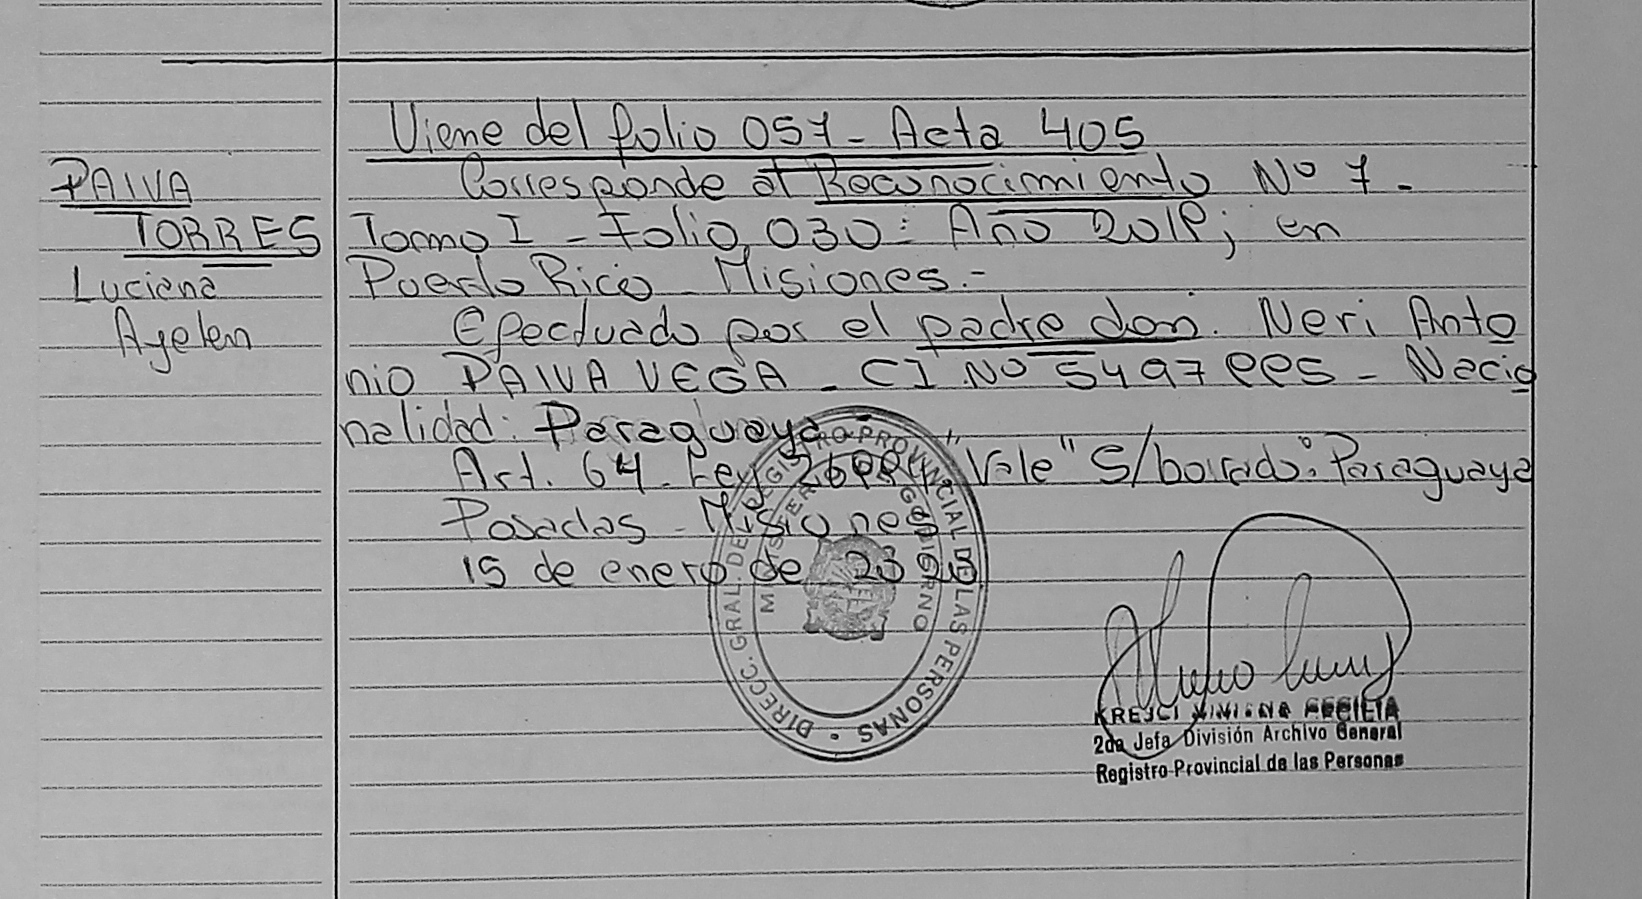 Viene del folio 057 - Acta 405
PAIVA
TORRES
Luciana
Ayelen
Corresponde al Reconocimiento Nº 7.-
Tomo I - Folio 030: Año 2018; en
Puerto Rico - Misiones.-
Efectuado por el padre don. Neri Anto
nio PAIVA VEGA - CI Nº 5497885 - Nacio
nalidad: Paraguaya -
Art. 64 - Ley 26994 "Vale" S/borrado: Paraguaya
Posadas - Misiones
15 de enero de
DIRECC. GRAL. DE REGISTRO PROVINCIAL DE LAS PERSONAS
MINISTERIO GOBIERNO
KREJCI
2da Jefa División Archivo General
Registro Provincial de las Personas